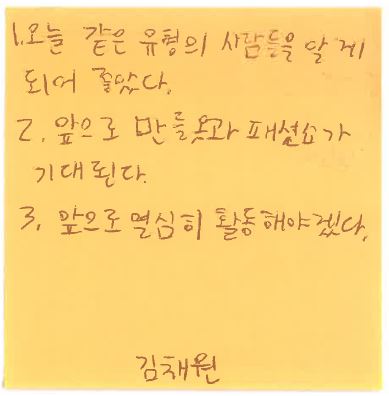 1. 오늘 같은 유형의 사람들을 알게
되어 좋았다.
2. 앞으로 만들옷과 패션쇼가
기대된다.
3. 앞으로 열심히 활동해야겠다.
김채원